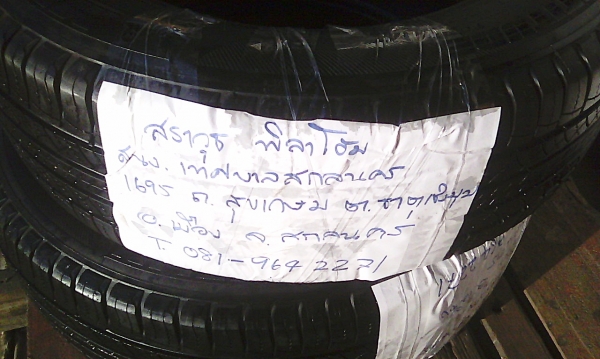 สราวุธ พิลาโฮม
สนง. เทศบาลสกลนคร
1695 ถ. สุขเกษม ต. ธาตุเชิงชุม
อ. เมือง จ. สกลนคร
T 081-964 2271